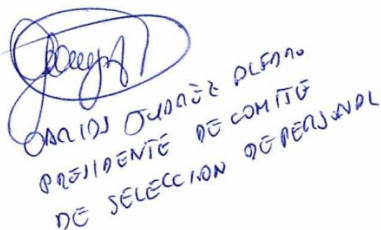 CARLOS JUAREZ ALFARO
PRESIDENTE DE COMITÉ
DE SELECCION DE PERSONAL